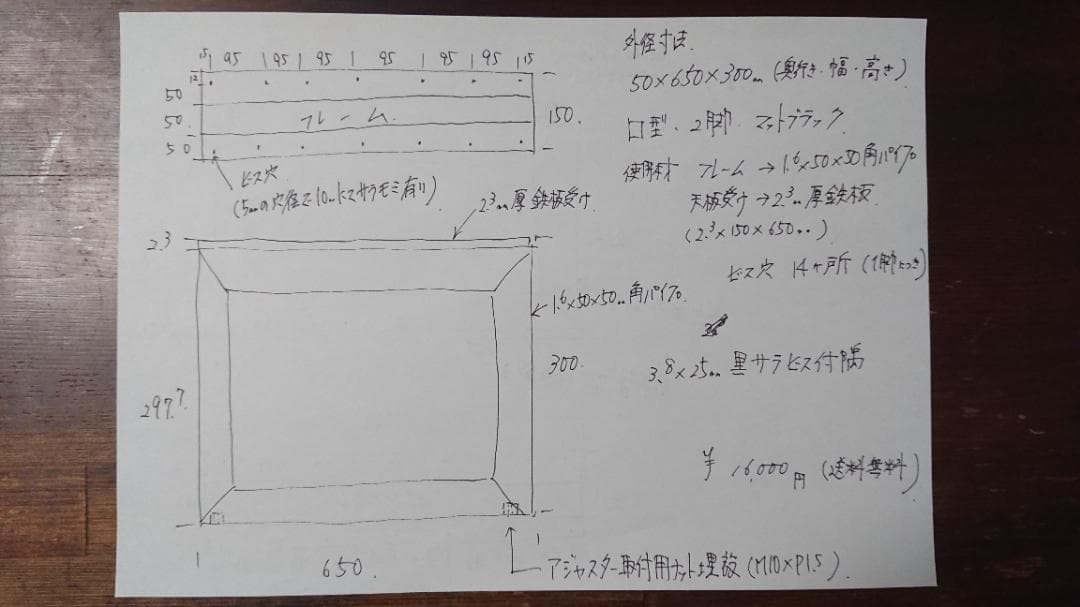 15 95 95 95 95 95 95 15
12
50
50
50
フレーム
150.
ビス穴
(5mmの穴径で10mmにてサラモミ有り)
2.3mm厚鉄板受け
2.3
1.6×50×50mm角パイプ
300.
297.7
650.
アジャスター取付用ナット埋設(M10×P1.5)
外径寸法.
50×650×300mm(奥行き・幅・高さ)
ロ型・2脚 マットブラック
使用材 フレーム→1.6×50×50角パイプ
天板受け→2.3mm厚鉄板
(2.3×150×650mm)
ビス穴 14ヶ所(1脚につき)
3.8×25mm 黒サラビス付隅
¥16,000円(送料無料)